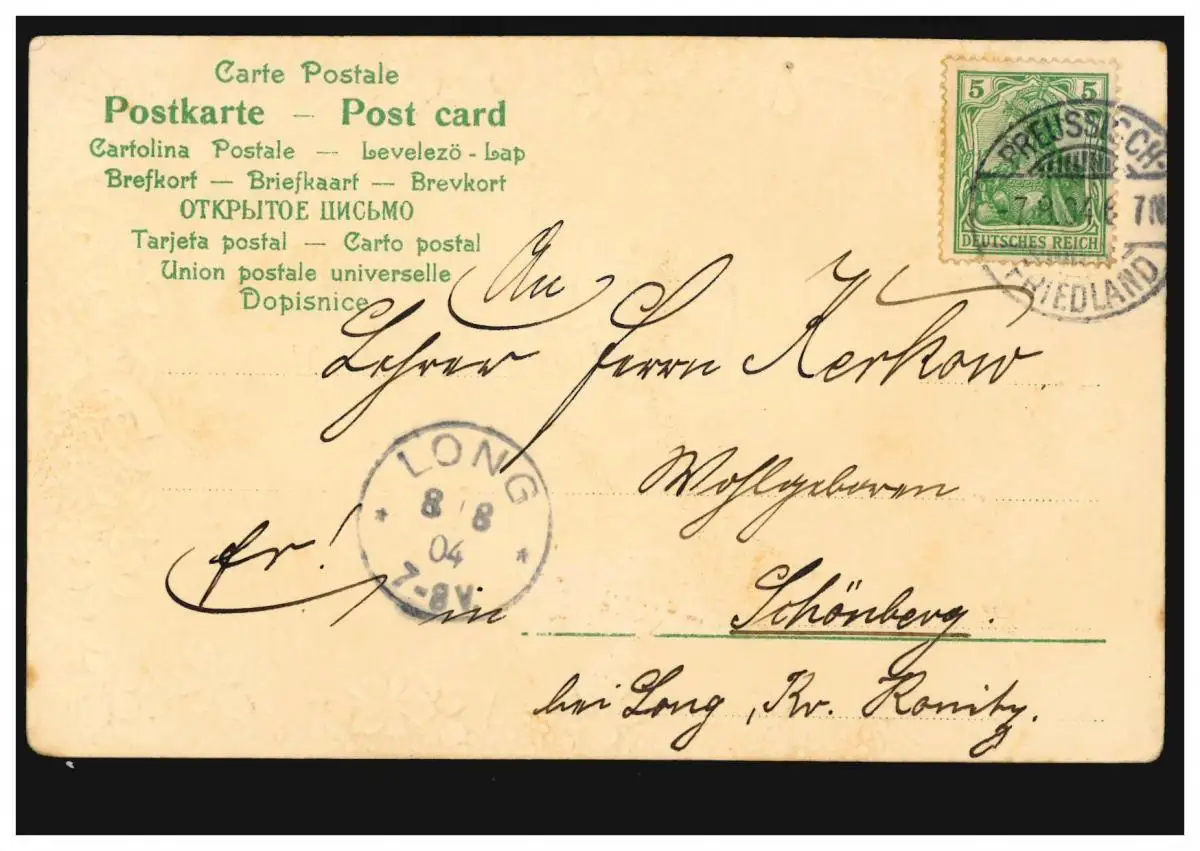 Carte Postale
Postkarte – Post card
Cartolina Postale – Levelező-Lap
Brefkort – Briefkaart – Brevkort
ОТКРЫТОЕ ПИСЬМО
Tarjeta postal – Carto postal
Union postale universelle
Dopisnice
5 5
DEUTSCHES REICH
PREUSSISCH-
7.8.04. 7N
FRIEDLAND
An
Lehrer Herrn Kerkow
Wohlgeboren
LONG
8/8
04
7-8V
fr!
in Schönberg.
bei Long, Kr. Konitz.